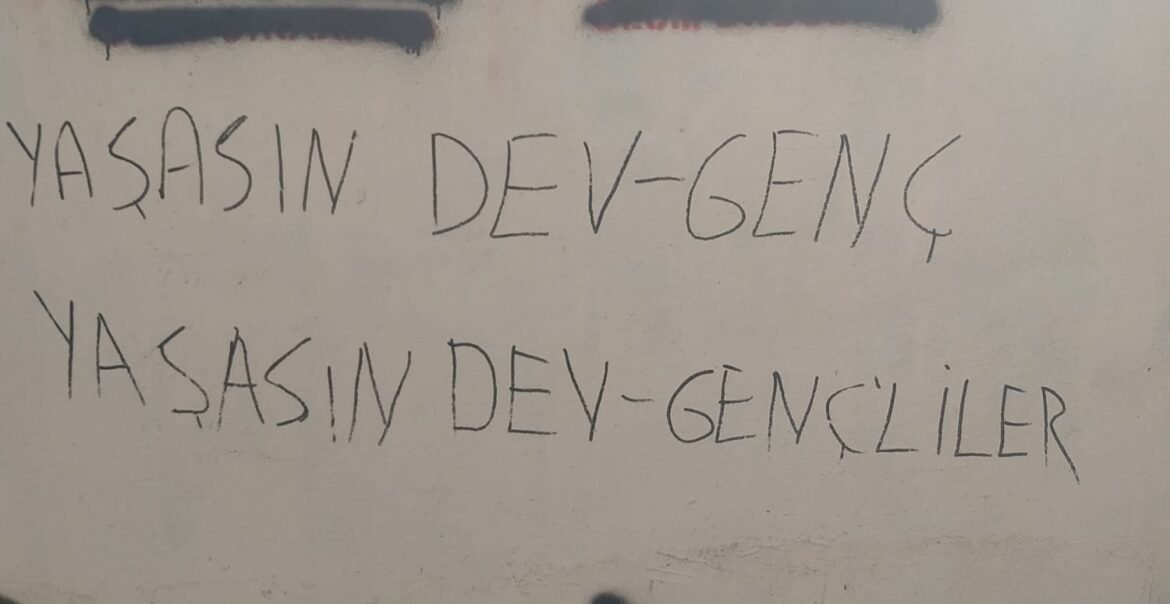 YAŞASIN DEV-GENÇ
YAŞASIN DEV-GENÇ'LİLER